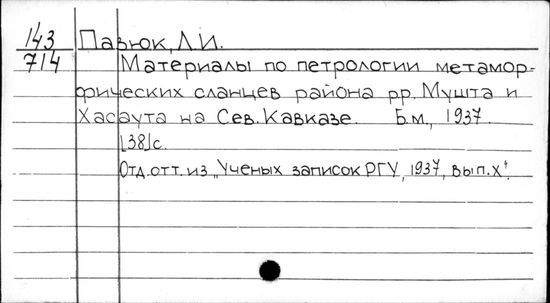 143 Павюк, Л.И.
714 Материалы по петрологии метамор-
фических сланцев района рр. Мушта и
Хасаута на Сев. Кавказе. Б.м., 1937.
[38]с.
Отд.отт. из „Ученых записок РГУ, 1937, вып. X".